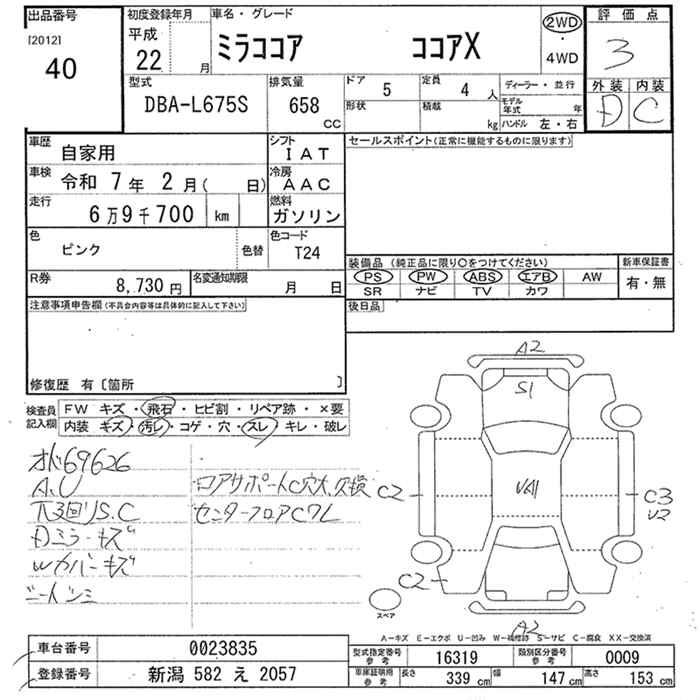 出品番号 初度登録年月 車名・グレード 評価点
[2012] 40 平成 22 月 ミラココア ココアX 2WD・4WD 3
型式 排気量 ドア 5 定員 4 人 ディーラー・並行 外装 内装
DBA-L675S 658 CC 形状 積載 kg モデル年式 年 D C
ハンドル 左・右
車歴 自家用 シフト IAT セールスポイント(正常に機能するものに限ります)
車検 令和 7年 2月( 日) 冷房 AAC
走行 6万9千700 km 燃料 ガソリン
色 ピンク 色替 色コード T24
装備品 (純正品に限り○をつけてください) 新車保証書
R券 8,730円 名変通知期限 月 日 PS PW ABS エアB AW 有・無
SR ナビ TV カワ
注意事項申告欄(不具合内容等は具体的に記入して下さい) 後日品
修復歴 有〔箇所 〕
検査員記入欄 FW キズ・飛石・ヒビ割・リペア跡・×要
内装 キズ・汚レ・コゲ・穴・スレ・キレ・破レ
A2
S1
69626
A.U ロアサポートC穴大、欠損
S.C センターフロアC
Dミラーキズ
Wカバーキズ
シートシミ
C2 C3
U2
C2
スペア
A2
A-キズ E-エクボ U-凹み W-補修跡 S-サビ C-腐食 XX-交換済
車台番号 0023835 型式指定番号 参考 16319 類別区分番号 参考 0009
登録番号 新潟 582 え 2057 車庫証明用 参考 長さ 339 cm 幅 147 cm 高さ 153 cm